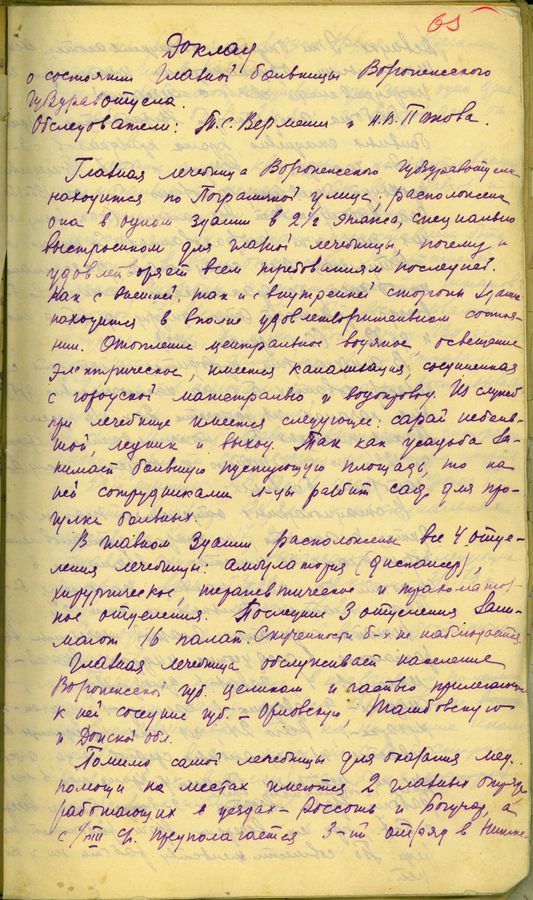 65
Доклад
о состоянии Глазной больницы Воронежского
Губздравотдела.
Обследователи: П.С. Вермени и Н.В.
Глазная лечебница Воронежского Губздравотдела
находится по улице, расположена
она в одном здании в 2 1/2 этажа, специально
выстроенном для глазной лечебницы, почему и
удовлетворяет всем требованиям последней.
Как с внешней, так и с внутренней стороны здание
находится в вполне удовлетворительном состоя-
нии. Отопление центральное водяное, освещение
электрическое, имеется канализация, соединенная
с городской магистралью и водопровод. Из служб
при лечебнице имеется следующее: сарай неболь-
шой, ледник и выход. Так как усадьба за-
нимает большую пустующую площадь, то на
ней сотрудниками л-цы разбит сад для про-
гулки больных.
В главном здании расположены все 4 отде-
ления лечебницы: амбулатория (диспансер),
хирургическое, терапевтическое и трахоматоз-
ное отделения. Последние 3 отделения зани-
мают 16 палат. Скученности б-х не наблюдается.
Глазная лечебница обслуживает население
Воронежской губ. целиком и частью прилегающие
к ней соседние губ. – Орловскую, Тамбовскую
и Донской обл.
Помимо самой лечебницы для оказания мед.
помощи на местах имеются 2 глазных отряда
работающих в уездах – Россошь и Богучар, а
с 1/VIII с.г. предполагается 3-ий отряд в Нижне-